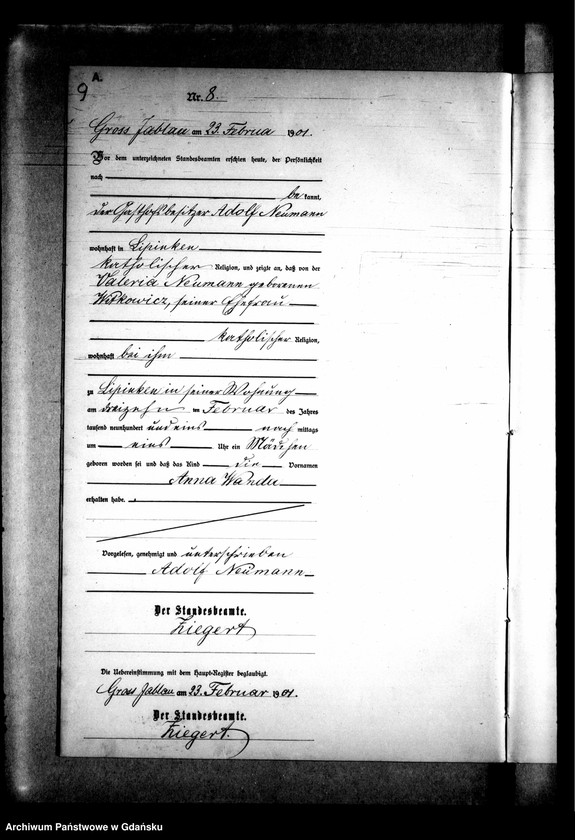 A.
9
Nr. 8.
Gross Jablau am 23. Februa 1901.
Vor dem unterzeichneten Standesbeamten erschien heute, der Persönlichkeit
nach
be kannt,
der Gasthofbesitzer Adolf Neumann
wohnhaft in Lipinken
katholischer Religion, und zeigte an, daß von der
Valeria Neumann geborenen
Witkowicz, seiner Ehefrau
katholischer Religion,
wohnhaft bei ihm
zu Lipinken in seiner Wohnung
am dreizehn ten Februar des Jahres
tausend neunhundert und eins nach mittags
um eins Uhr ein Mädchen
geboren worden sei und daß das Kind die Vornamen
Anna Wanda
erhalten habe.
Vorgelesen, genehmigt und unterschrieben
Adolf Neumann
Der Standesbeamte.
Ziegert
Die Uebereinstimmung mit dem Haupt-Register beglaubigt.
Gross Jablau am 23. Februar 1901.
Der Standesbeamte.
Ziegert.
Archiwum Państwowe w Gdańsku